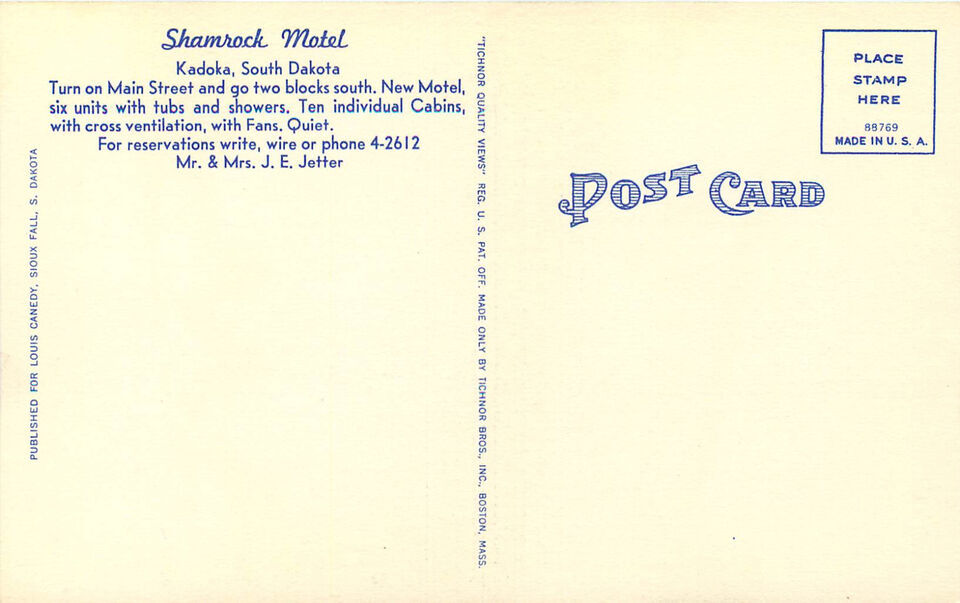 Shamrock Motel
Kadoka, South Dakota
Turn on Main Street and go two blocks south. New Motel,
six units with tubs and showers. Ten individual Cabins,
with cross ventilation, with Fans. Quiet.
For reservations write, wire or phone 4-2612
Mr. & Mrs. J. E. Jetter
PUBLISHED FOR LOUIS CANEDY, SIOUX FALL, S. DAKOTA
"TICHNOR QUALITY VIEWS" REG. U. S. PAT. OFF. MADE ONLY BY TICHNOR BROS., INC., BOSTON, MASS.
POST CARD
PLACE
STAMP
HERE
88769
MADE IN U. S. A.